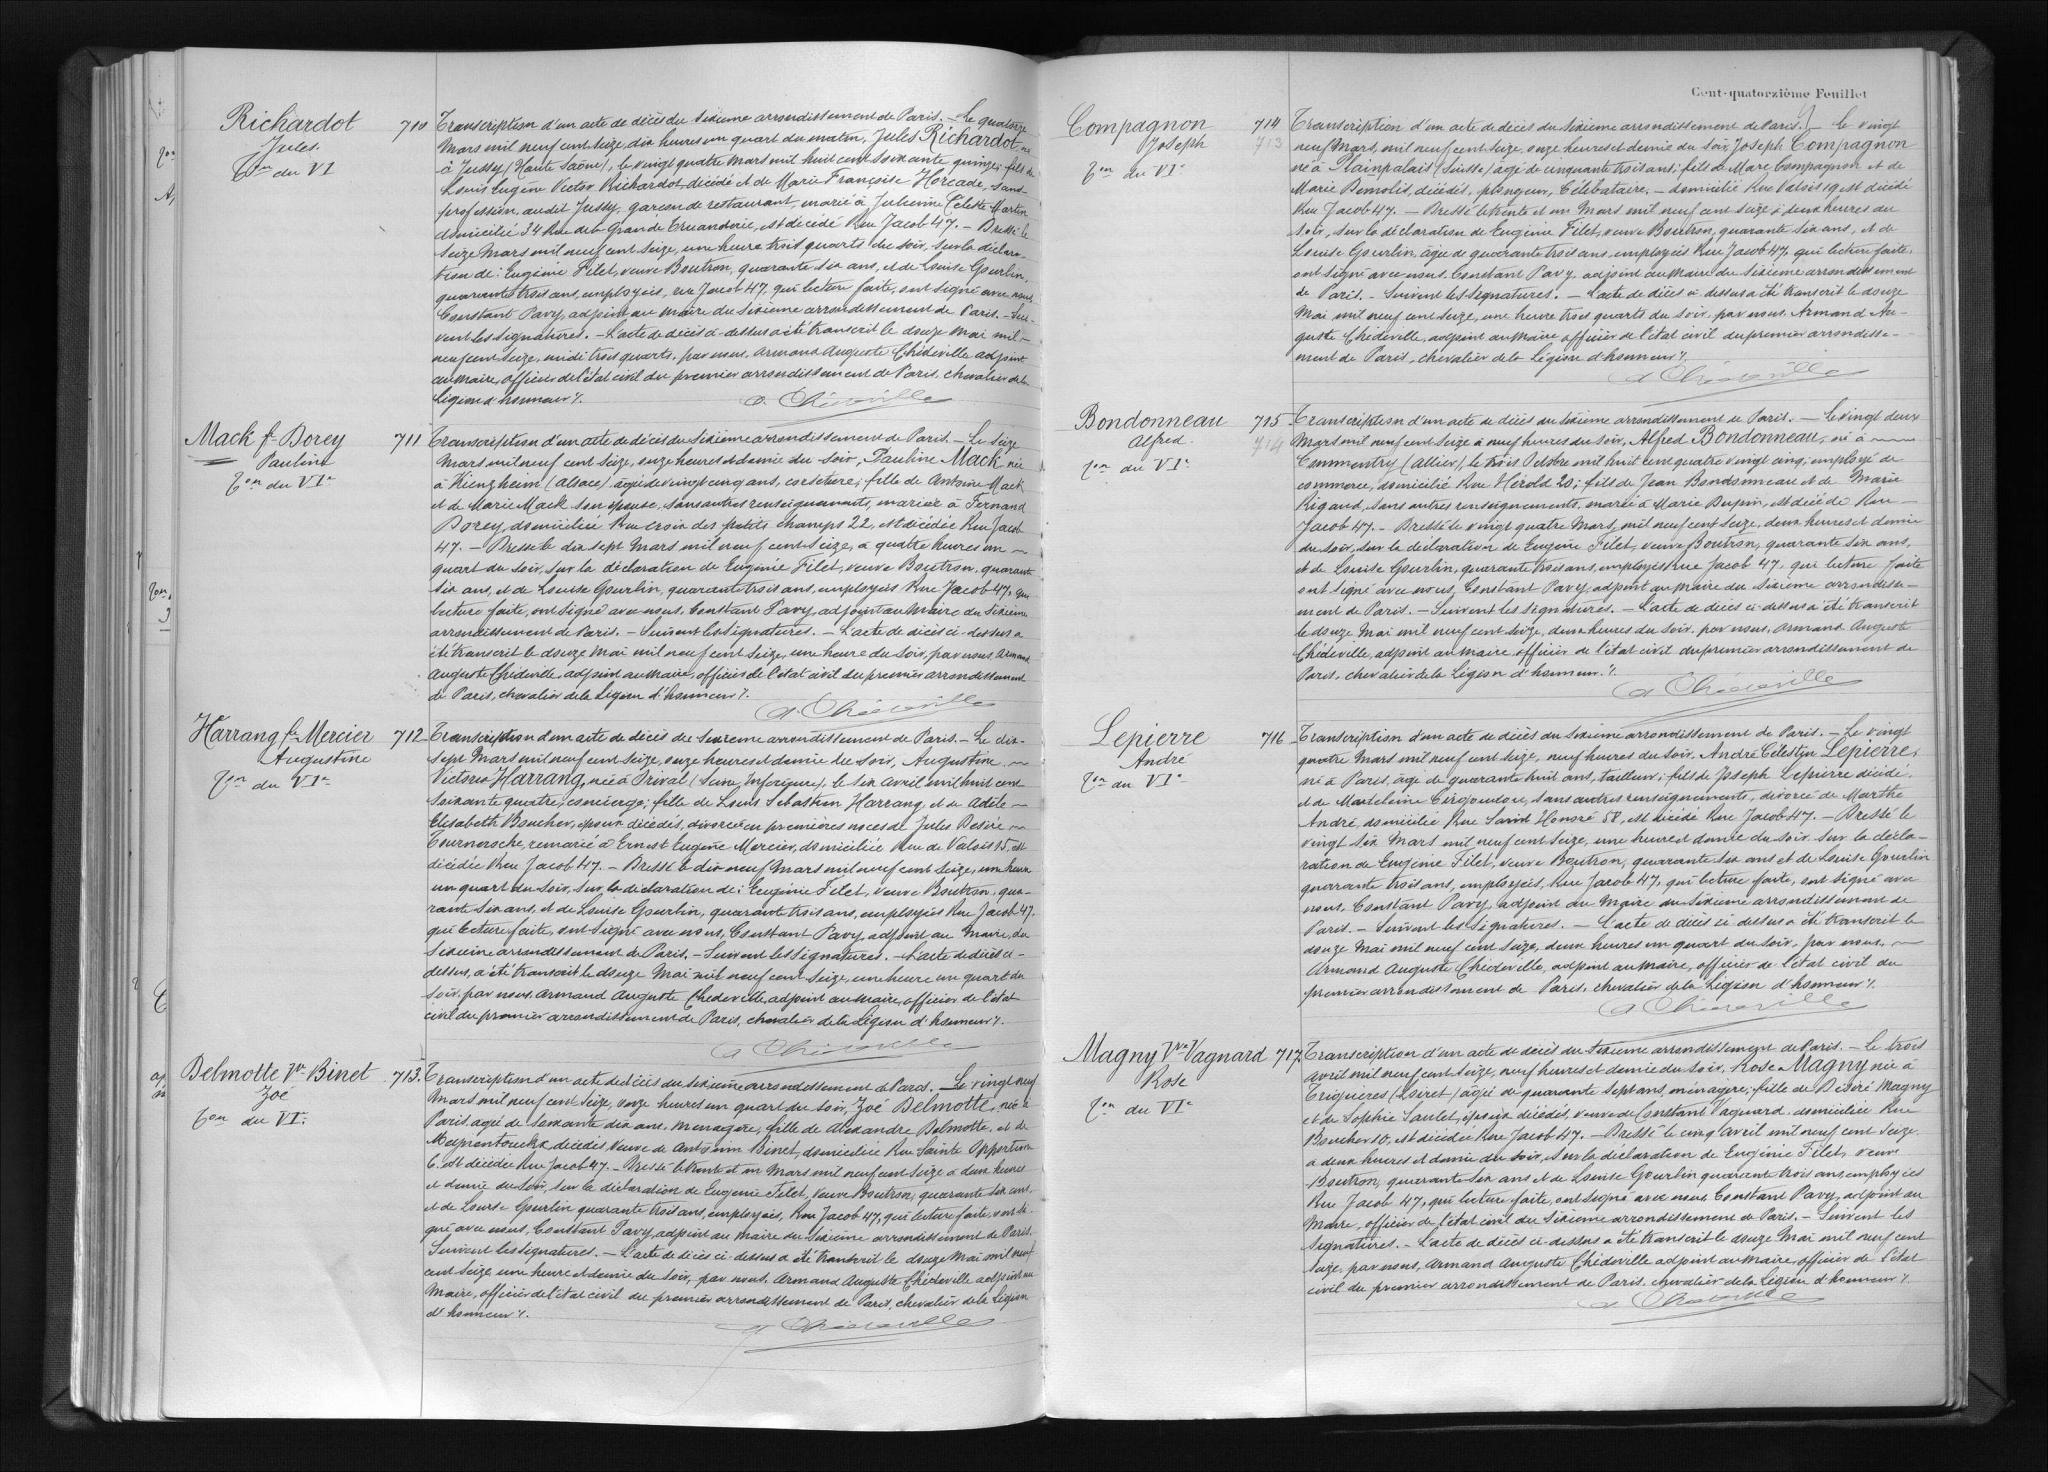 Richardot
Jules
Ton du VI
710
Transcription d'un acte de décès du sixième arrondissement de Paris. — Le quatorze
Mars mil neuf cent seize, dix heures un quart du matin, Jules Richardot, né
à Jussy (Haute Saône), le vingt quatre mars mil huit cent soixante quinze; fils de
Louis Eugène Victor Richardot, décédé et de Marie Françoise Horcade, sans
profession, audit Jussy, garçon de restaurant, marié à Julienne Céleste Martin
domicilié 34 Rue de la Grande Truanderie, est décédé Rue Jacob 47. — Dressé le
seize Mars mil neuf cent seize, une heure trois quarts du soir, sur la déclara-
tion de: Eugénie Filet, veuve Boutron, quarante six ans, et de Louise Gourlin,
quarante trois ans, employées, rue Jacob 47, qui lecture faite, ont signé avec nous,
Constant Pavy, adjoint au maire du sixième arrondissement de Paris. — Sui-
vent les signatures. — L'acte de décès ci-dessus a été transcrit le douze Mai mil-
neuf cent seize, midi trois quarts, par nous, Armand Auguste Chédeville adjoint
au maire, officier de l'état civil du premier arrondissement de Paris, chevalier de la
Légion d'honneur ./.
A Chédeville
Mack fe Dorey
Pauline
Ton du VIe
711
Transcription d'un acte de décès du sixième arrondissement de Paris. — Le seize
Mars mil neuf cent seize, onze heures et demie du soir, Pauline Mack née
à Kienzheim (Alsace) âgée de vingt cinq ans, corsetière; fille de Antoine Mack
et de Marie Mack son épouse, sans autres renseignements, mariée à Fernand
Dorey, domiciliée Rue croix des petits champs 22, est décédée Rue Jacob
47. — Dressé le dix sept Mars mil neuf cent seize, à quatre heures un
quart du soir, sur la déclaration de Eugénie Filet, veuve Boutron, quarante
six ans, et de Louise Gourlin, quarante trois ans, employées Rue Jacob 47, qui
lecture faite, ont signé avec nous, Constant Pavy, adjoint au Maire du sixième
arrondissement de Paris. — Suivent les signatures. — L'acte de décès ci-dessus a
été transcrit le douze Mai mil neuf cent seize, une heure du soir, par nous, Armand
Auguste Chédeville, adjoint au maire, officier de l'état civil du premier arrondissement
de Paris, chevalier de la Légion d'honneur ./.
A. Chédeville
Harrang fe Mercier
Augustine
Ton du VIe
712
Transcription d'un acte de décès du sixième arrondissement de Paris. — Le dix-
sept Mars mil neuf cent seize, onze heures et demie du soir, Augustine
Victoria Harrang, née à Orival (Seine Inférieure), le six avril mil huit cent
soixante quatre, concierge; fille de Louis Sébastien Harrang, et de Adèle
Elisabeth Boucher, époux décédés, divorcée en premières noces de Jules Désiré
Tournoroche, remariée à Ernest Eugène Mercier, domiciliée Rue de Valois 15, est
décédée Rue Jacob 47. — Dressé le dix neuf Mars mil neuf cent seize, une heure
un quart du soir, sur la déclaration de: Eugénie Filet, veuve Boutron, qua-
rante six ans, et de Louise Gourlin, quarante trois ans, employées Rue Jacob 47.
qui lecture faite, ont signé avec nous, Constant Pavy, adjoint au Maire, du
sixième arrondissement de Paris. — Suivent les signatures. — L'acte de décès ci-
dessus, a été transcrit le douze Mai mil neuf cent seize, une heure un quart du
soir, par nous, Armand Auguste Chédeville, adjoint au maire, officier de l'état
civil du premier arrondissement de Paris, chevalier de la Légion d'honneur ./.
A Chédeville
Delmotte Vve Binet
Zoé
Ton du VI.
713.
Transcription d'un acte de décès du sixième arrondissement de Paris. Le vingt neuf
Mars mil neuf cent seize, onze heures un quart du soir, Zoé Delmotte, née à
Paris, agée de soixante dix ans, menagère, fille de Alexandre Delmotte, et de
décédés, Veuve de Antonin Binet, domiciliée Rue Sainte Opportune
6, est décédée Rue Jacob 47. — Dressé le trente et un Mars mil neuf cent seize à deux heures
et demie du soir, sur la déclaration de Eugénie Filet, veuve Boutron, quarante six ans,
et de Louise Gourlin quarante trois ans, employées, Rue Jacob 47, qui lecture faite, ont si-
gné avec nous, Constant Pavy, adjoint au Maire du sixième arrondissement de Paris.
Suivent les signatures. — L'acte de décès ci-dessus a été transcrit le douze Mai mil neuf
cent seize, une heure et demie du soir, par nous, Armand Auguste Chédeville adjoint au
Maire, officier de l'état civil du premier arrondissement de Paris, chevalier de la Légion
d'honneur ./.
A Chédeville
Cent-quatorzième Feuillet
Compagnon
Joseph
Ton du VIe
714
713
Transcription d'un acte de décès du sixième arrondissement de Paris. Le vingt
neuf Mars, mil neuf cent seize, onze heures et demie du soir, Joseph Compagnon
né à Plainpalais (Suisse) âgé de cinquante trois ans; fils de Marc Compagnon et de
Marie décédés, plongeur, Célibataire, — domicilié Rue Valois 19 est décédé
Rue Jacob 47. — Dressé le trente et un Mars mil neuf cent seize à deux heures du
soir, sur la déclaration de Eugénie Filet, veuve Boutron, quarante six ans, et de
Louise Gourlin, âgée de quarante trois ans, employées Rue Jacob 47, qui lecture faite,
ont signé avec nous, Constant Pavy, adjoint au Maire du sixième arrondissement
de Paris. — Suivent les signatures. — L'acte de décès ci-dessus a été transcrit le douze
Mai mil neuf cent seize, une heure trois quarts du soir, par nous, Armand Au-
guste Chédeville, adjoint au Maire officier de l'état civil du premier arrondisse-
ment de Paris, chevalier de la Légion d'honneur ./.
A Chédeville
Bondonneau
Alfred
Ton du VIe
715
714
Transcription d'un acte de décès du sixième arrondissement de Paris. — Le vingt deux
Mars mil neuf cent seize à neuf heures du soir, Alfred Bondonneau, né à
Commentry (Allier), le trois Octobre mil huit cent quatre vingt cinq; employé de
commerce, domicilié Rue Hérold 20; fils de Jean Bondonneau et de Marie
Rigaud, sans autres renseignements, marié à Marie Dupin, est décédé Rue
Jacob 47. — Dressé le vingt quatre Mars, mil neuf cent seize, deux heures et demie
du soir, sur la déclaration de Eugénie Filet, veuve Boutron, quarante six ans,
et de Louise Gourlin, quarante trois ans, employées Rue Jacob 47, qui lecture faite
ont signé avec nous, Constant Pavy, adjoint au Maire du sixième arrondisse-
ment de Paris. — Suivent les signatures. — L'acte de décès ci-dessus a été transcrit
le douze Mai mil neuf cent seize, deux heures du soir, par nous, Armand Auguste
Chédeville, adjoint au Maire, officier de l'état civil du premier arrondissement de
Paris, chevalier de la Légion d'honneur ./.
A Chédeville
Lepierre
André
Ton du VIe
716
Transcription d'un acte de décès du sixième arrondissement de Paris. — Le vingt
quatre Mars mil neuf cent seize, neuf heures du soir, André Célestin Lepierre,
né à Paris, âgé de quarante huit ans, tailleur; fils de Joseph Lepierre décédé,
et de Madeleine sans autres renseignements, divorcé de Marthe
André, domicilié Rue Saint Honoré 58, est décédé Rue Jacob 47. — Dressé le
vingt six Mars mil neuf cent seize, une heure et demie du soir, sur la décla-
ration de Eugénie Filet, veuve Boutron, quarante six ans et de Louise Gourlin
quarante trois ans, employées, Rue Jacob 47, qui lecture faite, ont signé avec
nous, Constant Pavy, adjoint au Maire du sixième arrondissement de
Paris. — Suivent les signatures. — L'acte de décès ci-dessus a été transcrit le
douze Mai mil neuf cent seize, deux heures un quart du soir, par nous,
Armand Auguste Chédeville, adjoint au Maire, officier de l'état civil du
premier arrondissement de Paris, chevalier de la Légion d'honneur ./.
A Chédeville
Magny Vve Vagnard
Rose
Ton du VIe
717.
Transcription d'un acte de décès du sixième arrondissement de Paris. — Le trois
Avril mil neuf cent seize, neuf heures et demie du soir, Rose Magny née à
Triguères (Loiret) âgée de quarante sept ans, ménagère, fille de Désiré Magny
et de Sophie Saulet, époux décédés, veuve de Constant Vagnard, domiciliée Rue
Boucher 10, est décédée Rue Jacob 47. — Dressé le cinq Avril mil neuf cent seize
à deux heures et demie du soir, sur la déclaration de Eugénie Filet, veuve
Boutron, quarante six ans et de Louise Gourlin quarante trois ans, employées
Rue Jacob 47, qui lecture faite, ont signé avec nous, Constant Pavy, adjoint au
Maire, officier de l'état civil du sixième arrondissement de Paris. — Suivent les
signatures. — L'acte de décès ci-dessus a été transcrit le douze Mai mil neuf cent
seize, par nous, Armand Auguste Chédeville adjoint au Maire, officier de l'état
civil du premier arrondissement de Paris, chevalier de la Légion d'honneur ./.
A Chédeville